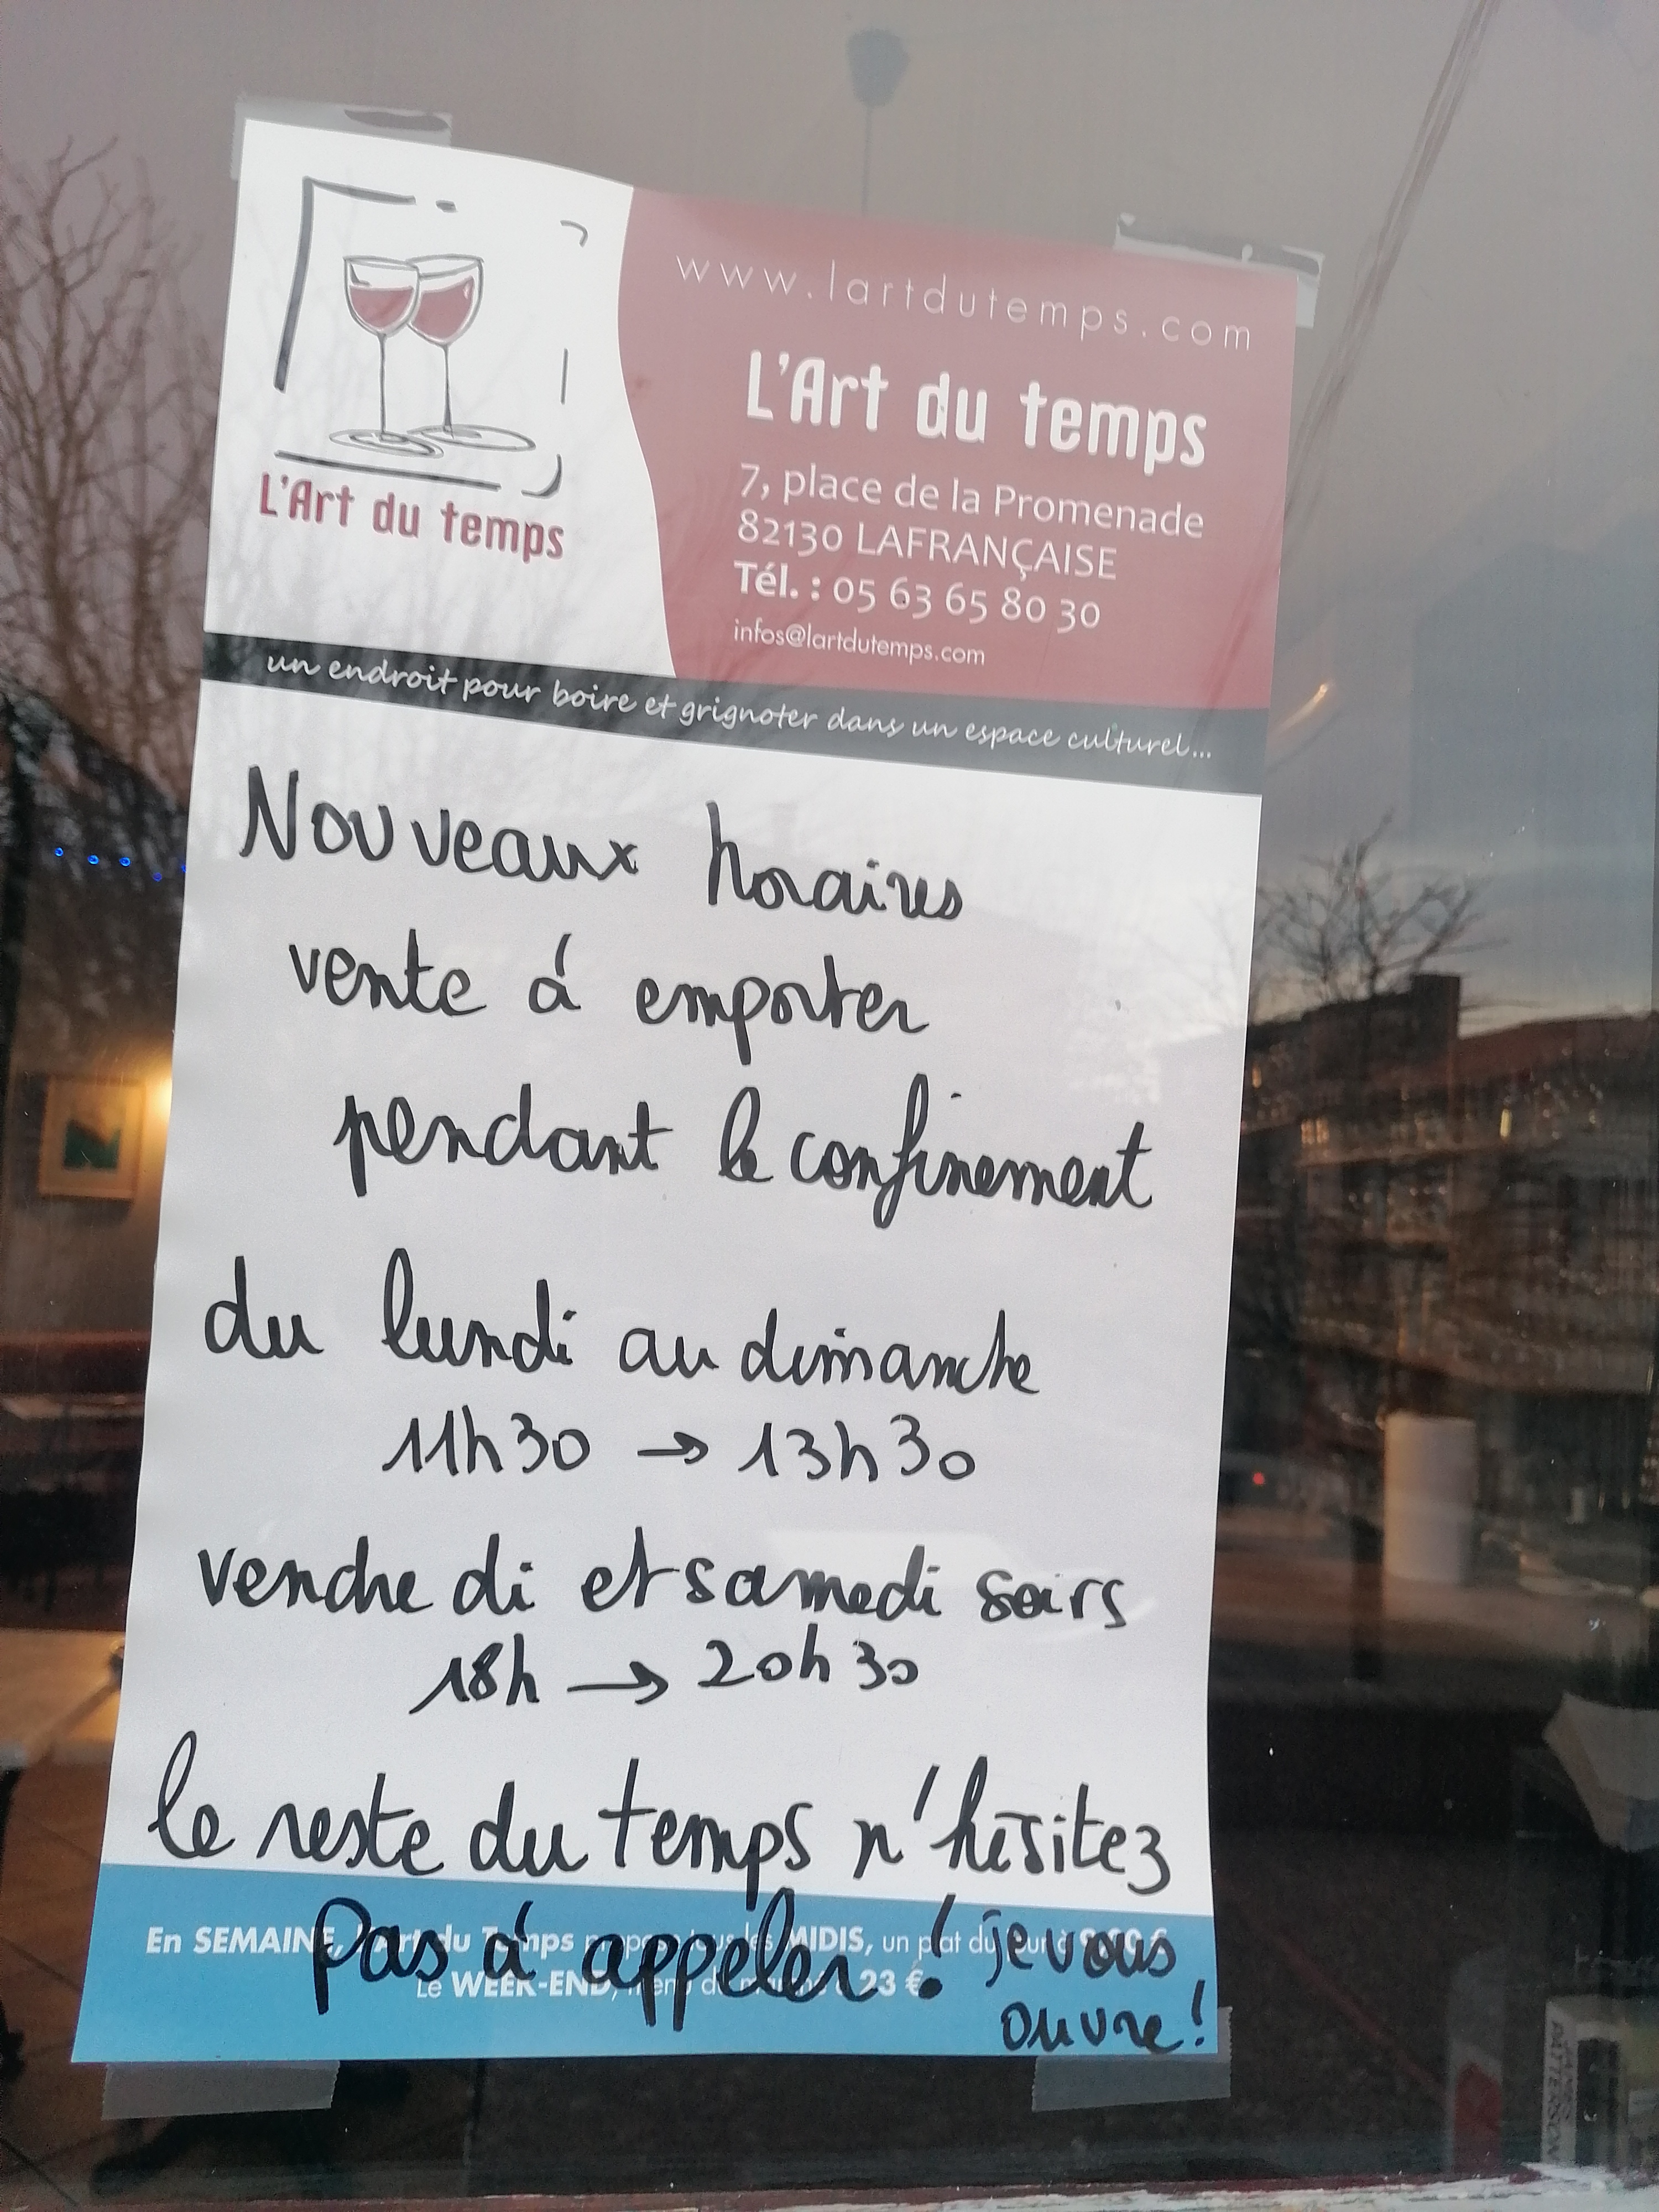 www.lartdutemps.com
L'Art du temps
7, place de la Promenade
82130 LAFRANÇAISE
Tél. : 05 63 65 80 30
infos@lartdutemps.com
L'Art du temps
un endroit pour boire et grignoter dans un espace culturel...
Nouveaux horaires
vente à emporter
pendant le confinement
du lundi au dimanche
11h30 → 13h30
vendredi et samedi soirs
18h → 20h30
le reste du temps n'hésitez
pas à appeler ! je vous
ouvre !
En SEMAINE, du Temps MIDIS, un plat du
Le WEEK-END, 23 €